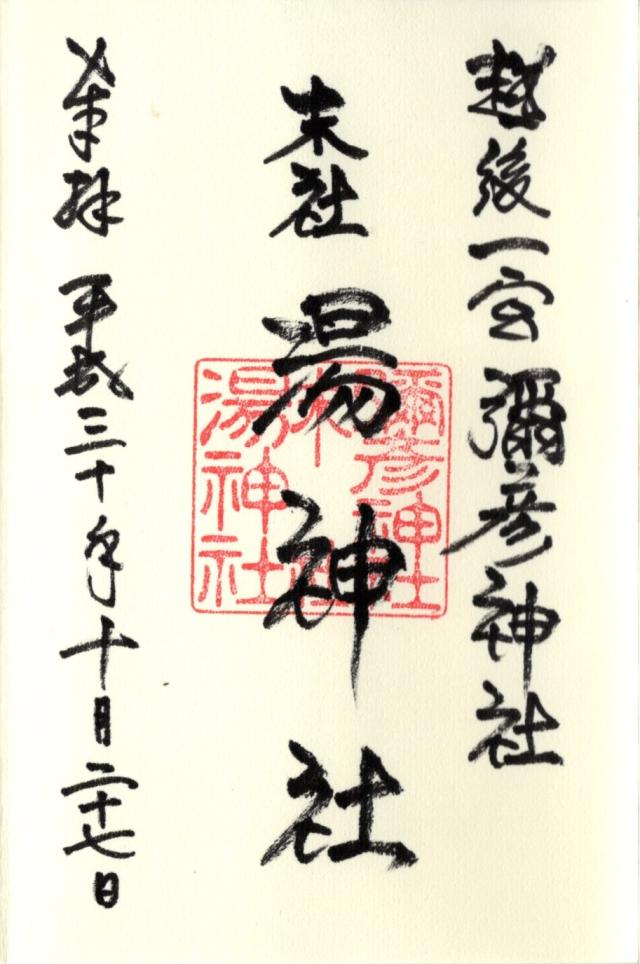 越後一宮 彌彦神社
末社
湯神社
彌彦神社
末社
湯神社
奉拝 平成三十年十月二十七日